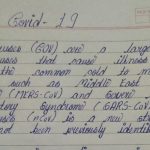 Covid-19
uses (COV) are a large
uses that cause illness
the common cold to m
such as Middle East
(MERS-CoV) and Severe
tory Syndrome (SARS-Cov
uses n(cov) is a new st
not been previously identifi